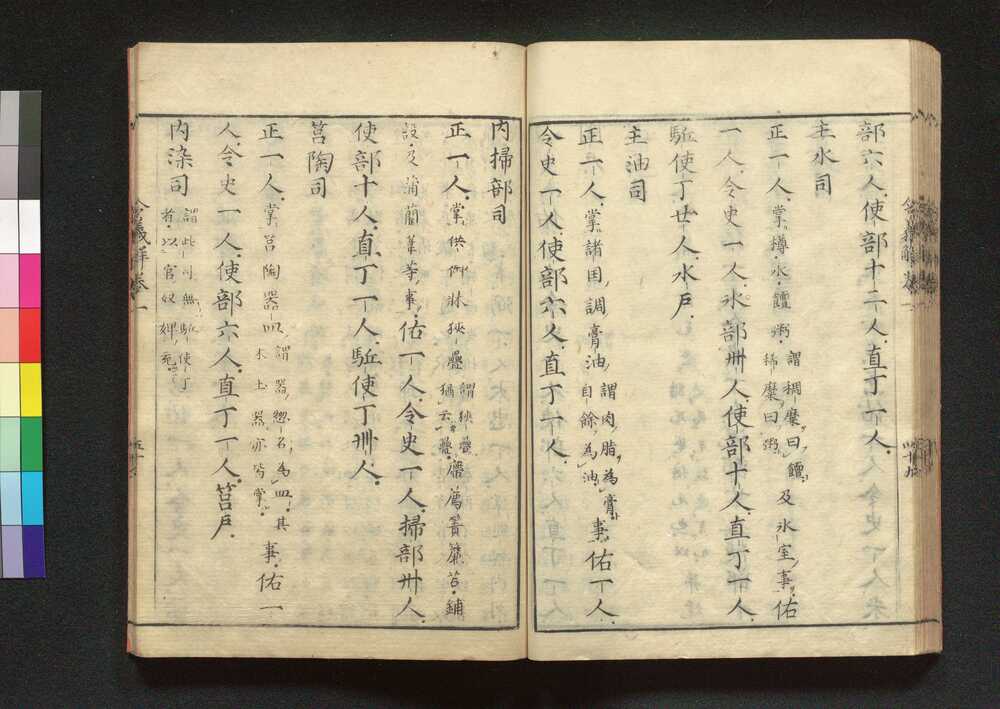 部六人。使部十二人。直丁一人。
主水司
正一人。掌。樽水饘粥。謂。稠糜曰饘。稀糜曰粥。及氷室事。佑
一人。令史一人。氷部卌人。使部十人。直丁一人。
駈使丁廿人。水戸。
主油司
正一人。掌。諸国調膏油。謂。肉脂為膏。自餘為油。事。佑一人。
令史一人。使部六人。直丁一人。
内掃部司
正一人。掌。供御牀狹疊。謂。狹疊。猶云疊。席薦簀簾苫。鋪
設。及蒲藺葦等事。佑一人。令史一人。掃部卅人。
使部十人。直丁一人。駈使丁卌人。
筥陶司
正一人。掌。筥陶器皿。謂。器。惣名。為皿。其木土器亦皆掌。事。佑一
人。令史一人。使部六人。直丁一人。筥戸。
内染司
謂。此司無駈使丁
者。以官奴婢充。
令義解卷一
四十九
令義解卷一
五十